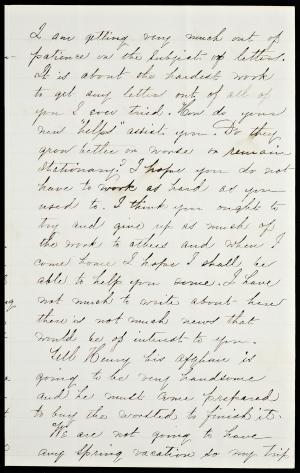 I am getting very much out of
patience on the subject of letters.
It is about the hardest work
to get any letter out of all of
you I ever tried. How do your
new "helps" assist you. Do they
grow better or worse or remain
stationary? I hope you do not
have to work as hard as you
used to. I think you ought to
try and give up as much of
the work to others and when I
come home I hope I shall be
able to help you some. I have
not much to write about here
there is not much news that
would be of interest to you.
Tell Henry his Afghan is
going to be very handsome
and he must come prepared
to buy the worsted to finish it.
We are not going to have
any Spring vacation so my trip